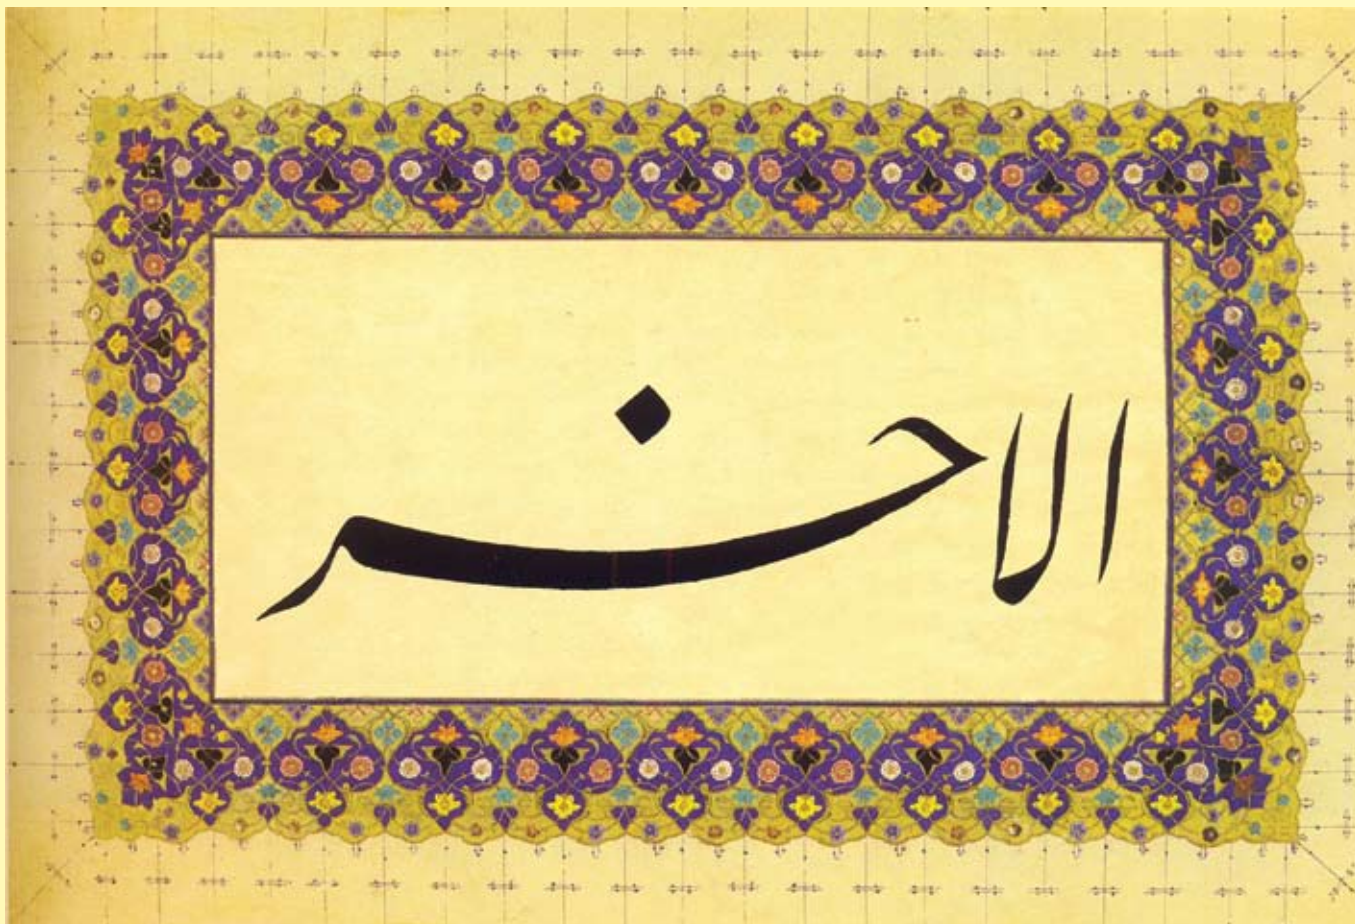 الاخر